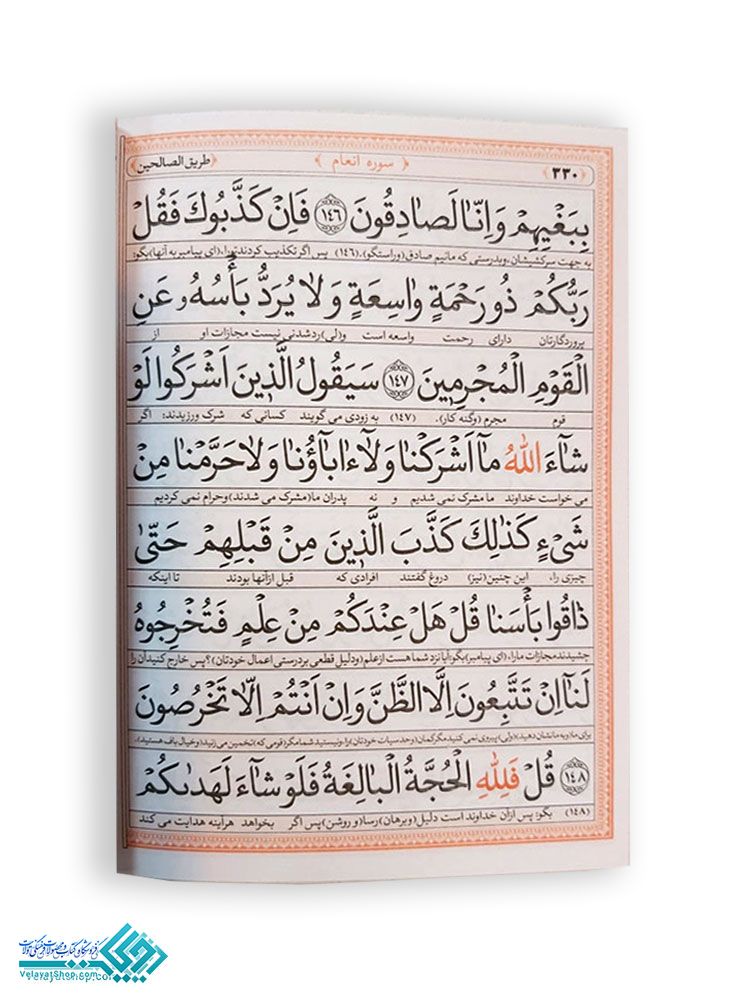 ﴿۳۳۰﴾ ﴿ سوره انعام ﴾ ﴿طریق الصالحین﴾
بِبَغْیِهِمْ وَاِنّا لَصادِقُونَ ﴿۱۴۶﴾ فَاِنْ کَذَّبُوكَ فَقُلْ
به جهت سرکشیشان، وبدرستی که مائیم صادق(وراستگو).(۱۴۶) پس اگر تکذیب کردندتورا،(ای پیامبر به آنها)بگو:
رَبُّکُمْ ذُو رَحْمَةٍ واسِعَةٍ وَلا یُرَدُّ بَأْسُهُ و عَنِ
پروردگارتان دارای رحمت واسعه است و(لی)ردشدنی نیست مجازات او از
الْقَوْمِ الْمُجْرِمینَ ﴿۱۴۷﴾ سَیَقُولُ الَّذینَ اَشْرَکُوا لَوْ
قوم مجرم (وگنه کار). (۱۴۷) به زودی می گویند کسانی که شرک ورزیدند: اگر
شآءَ اللّٰهُ مآ اَشْرَکْنا وَلآ ءابآؤُنا وَلا حَرَّمْنا مِنْ
می خواست خداوند ما مشرک نمی شدیم و نه پدران ما(مشرک می شدند)وحرام نمی کردیم
شَیْءٍ کَذٰلِكَ کَذَّبَ الَّذینَ مِنْ قَبْلِهِمْ حَتّیٰ
چیزی را، این چنین(نیز) دروغ گفتند افرادی که قبل ازآنها بودند تا اینکه
ذاقُوا بَأْسَنا قُلْ هَلْ عِنْدَکُمْ مِنْ عِلْمٍ فَتُخْرِجُوهُ
چشیدند مجازات مارا، (ای پیامبر)بگو:آیا نزد شما هست ازعلم(ودلیل قطعی بردرستی اعمال خودتان)؟پس خارج کنیدآن را
لَنآ اِنْ تَتَّبِعُونَ اِلَّا الظَّنَّ وَاِنْ اَنْتُمْ اِلّا تَخْرُصُونَ
برای ما(وبه مانشان دهید)؛(ولی)پیروی نمی کنید مگرگمان(وحدسیات خودتان)را،ونیستید شما مگر(قومی که)تخمین می زنید(وخیال باف هستید).
﴿۱۴۸﴾ قُلْ فَلِلّٰهِ الْحُجَّةُ الْبالِغَةُ فَلَوْ شآءَ لَهَدٰىکُمْ
(۱۴۸) بگو: پس ازآن خداوند است دلیل(وبرهان)رسا(و روشن)پس اگر بخواهد هرآینه هدایت می کند
فروشگاه کتاب و محصولات فرهنگی ولایت
VelayatShop.com
Velayatshop.com